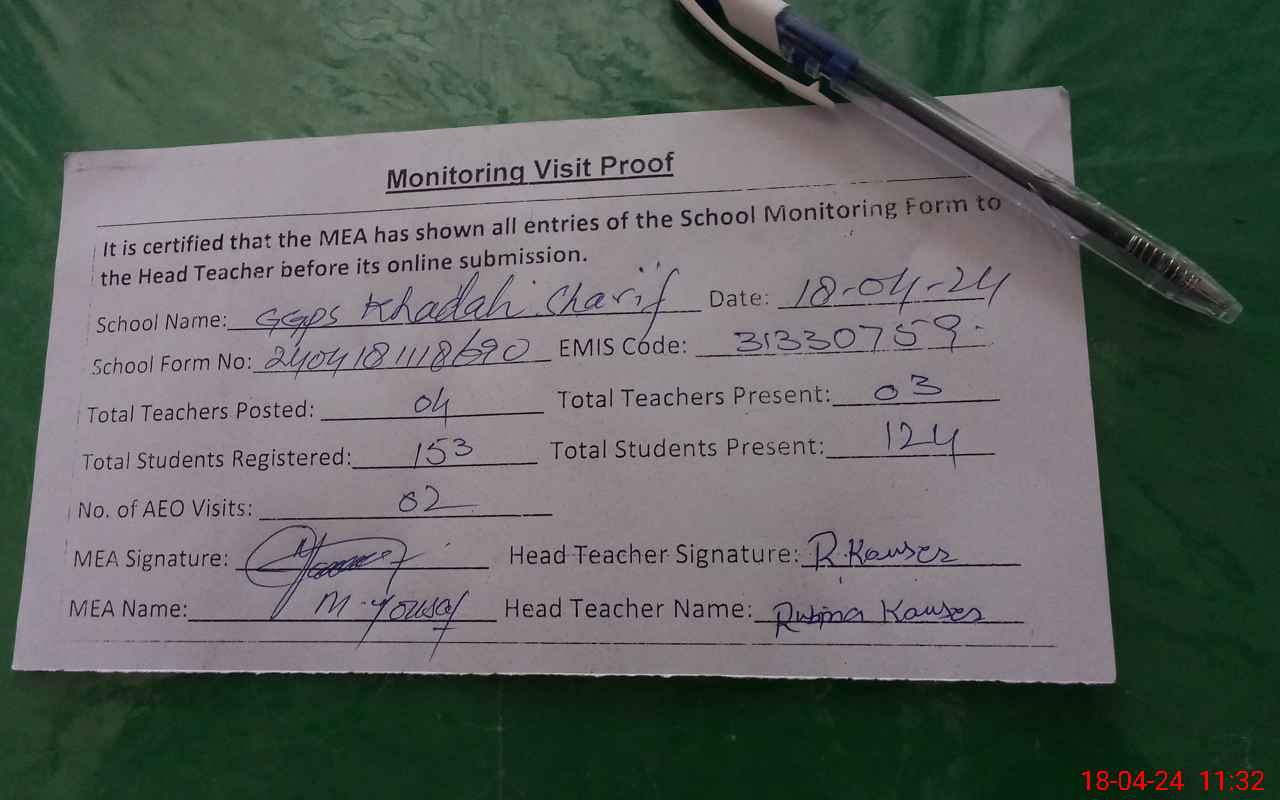 Monitoring Visit Proof
It is certified that the MEA has shown all entries of the School Monitoring Form to
the Head Teacher before its online submission.
School Name: GGPS Khadah Sharif Date: 18-04-24
School Form No: 2404181118690 EMIS Code: 31330759
Total Teachers Posted: 04 Total Teachers Present: 03
Total Students Registered: 153 Total Students Present: 124
No. of AEO Visits: 02
MEA Signature: Head Teacher Signature: R.Kauser
MEA Name: M.Yousaf Head Teacher Name: Rubina Kauser
18-04-24 11:32